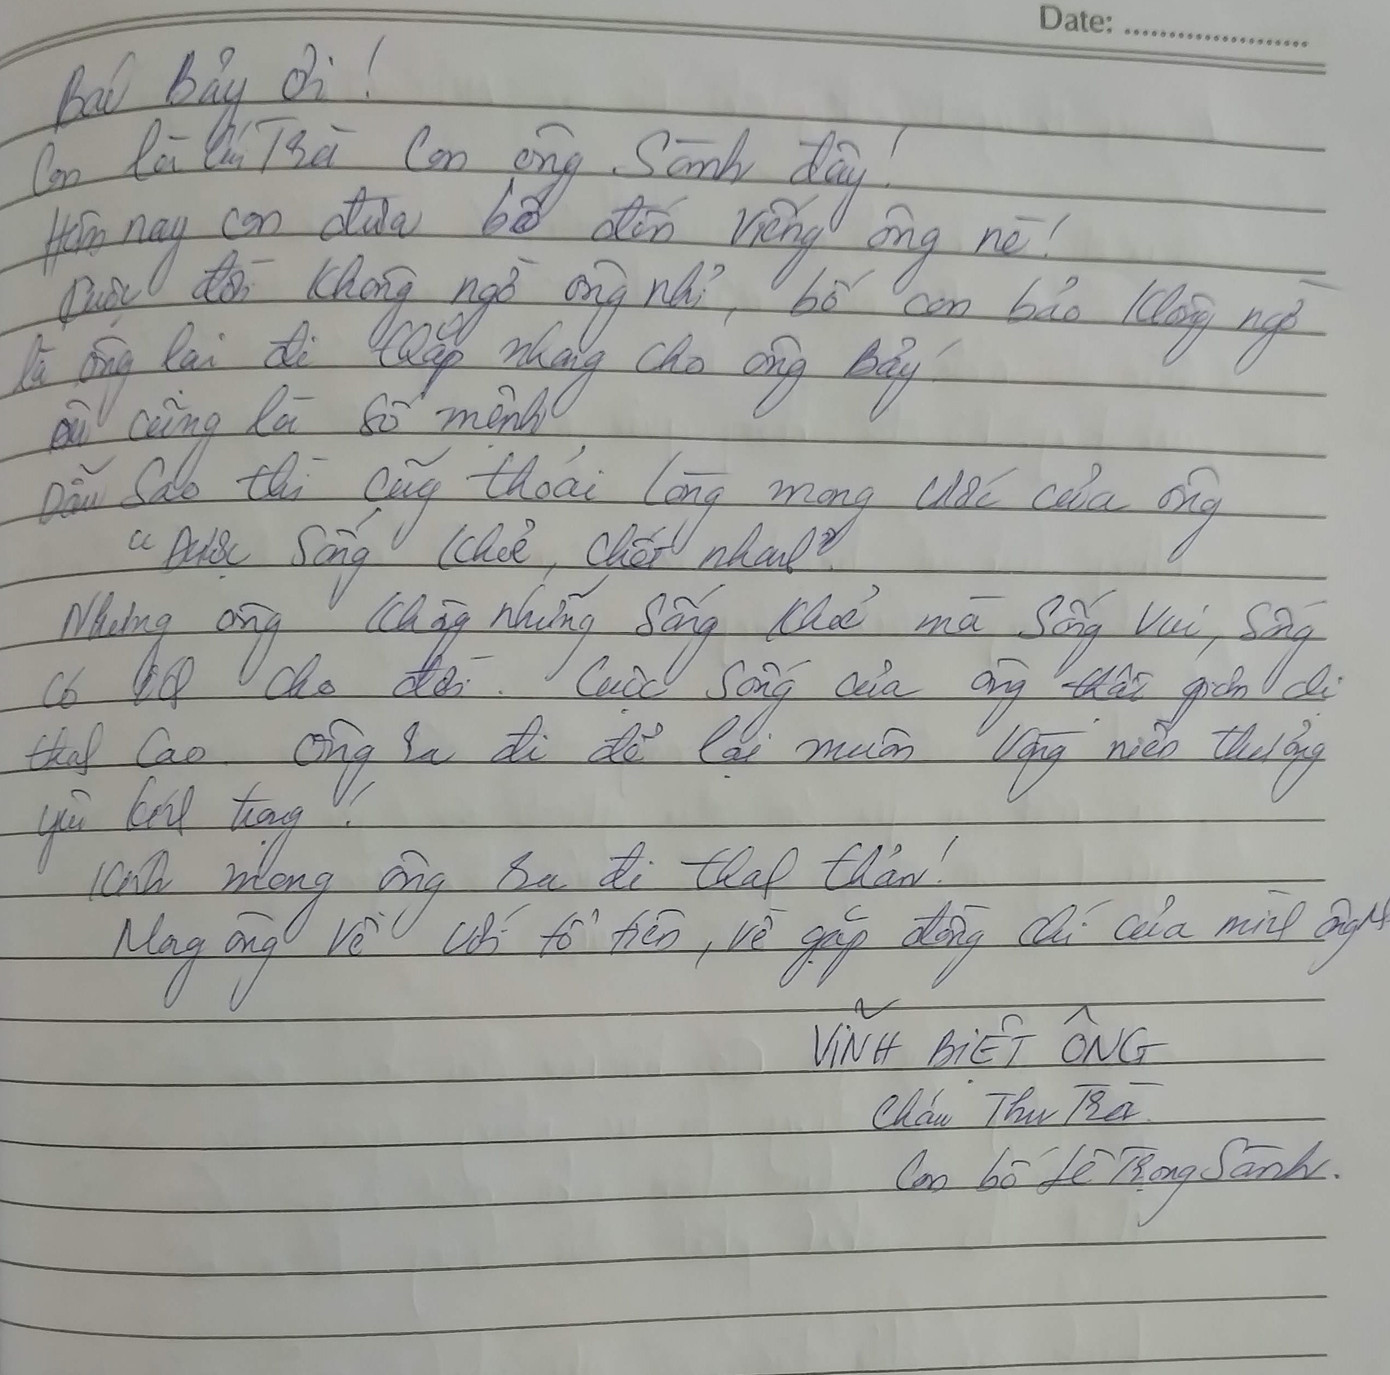 Date:
Bác Bảy ơi!
Con là Trà con ông Sành đây!
Hôm nay con đưa bố đến viếng ông nè!
Cuộc đời không ngờ ông nhỉ, bố con bảo không ngờ
là ông lại đi thắp nhang cho ông Bảy
cũng là số mệnh
Dẫu sao thì cũng thoải lòng mong ước của ông
"Được sống khoẻ, chết nhanh"
Nhưng ông không những sống khoẻ mà sống vui, sống
có ích cho đời. Cuộc sống của ông thật giản dị
thanh cao. Ông ra đi để lại muôn vàng niềm thương
yêu kính trọng!
Kính mong ông ra đi thanh thản!
Mong ông về với tổ tiên, về gặp đồng chí của mình ông
VĨNH BIỆT ÔNG
Cháu Thu Trà.
Con bố Lê Trọng Sành.